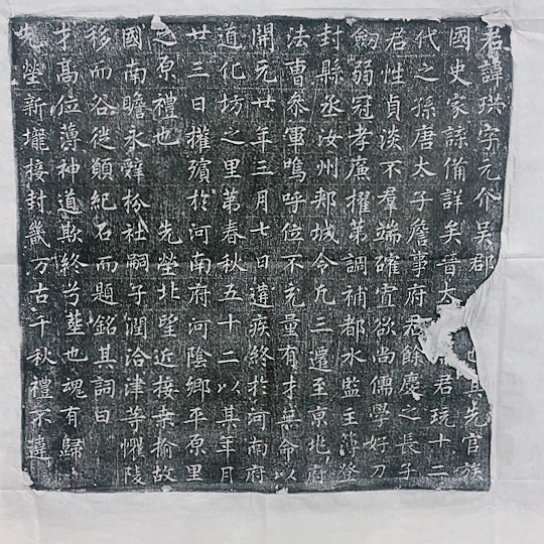 君諱珙字元介吳郡也其先官族
國史家諜備詳矣晉太君玩十二
代之孫唐太子詹事府君餘慶之長子
君性貞淡不羣端確寡欲尚儒學好刀
劒弱冠孝廉擢第調補都水監主簿登
封縣丞汝州郟城令凡三遷至京兆府
法曹參軍嗚呼位不充量有才無命以
開元廿年三月七日遘疾終於河南府
道化坊之里第春秋五十二以其年月
廿三日權殯於河南府河陰鄉平原里
之原禮也 先塋北望近接桑榆故
國南瞻永辭枌社嗣子潤洽津等懼陵
移而谷徙願紀石而題銘其詞曰
才高位薄神道欺終兮塟也魂有歸
先塋新壠接封畿万古千秋禮不違